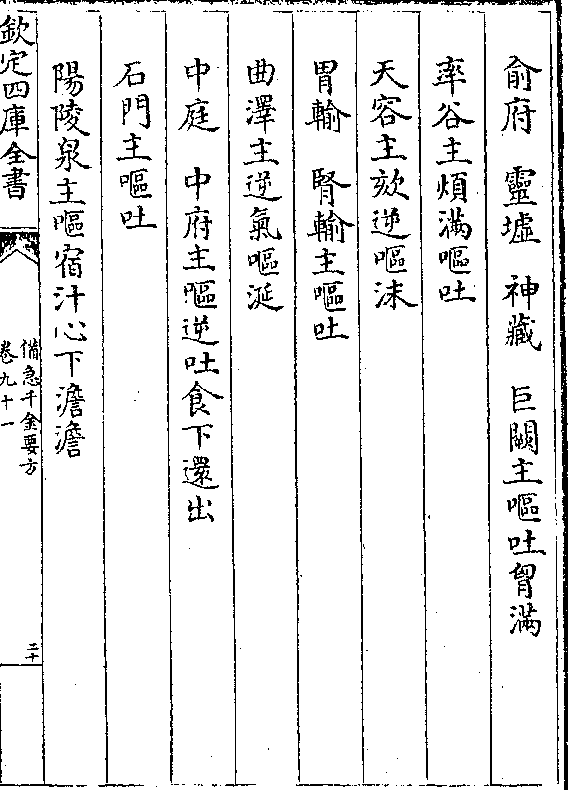 俞府　靈墟　神藏　巨闕主嘔吐胷滿
率谷主煩滿嘔吐
天容主欬逆嘔沫
胃輸　腎輸主嘔吐
曲澤主逆氣嘔涎
中庭　中府主嘔逆吐食下還出
石門主嘔吐
陽陵泉主嘔宿汁心下澹澹
欽定四庫全書
備急千金要方
卷九十一
二十